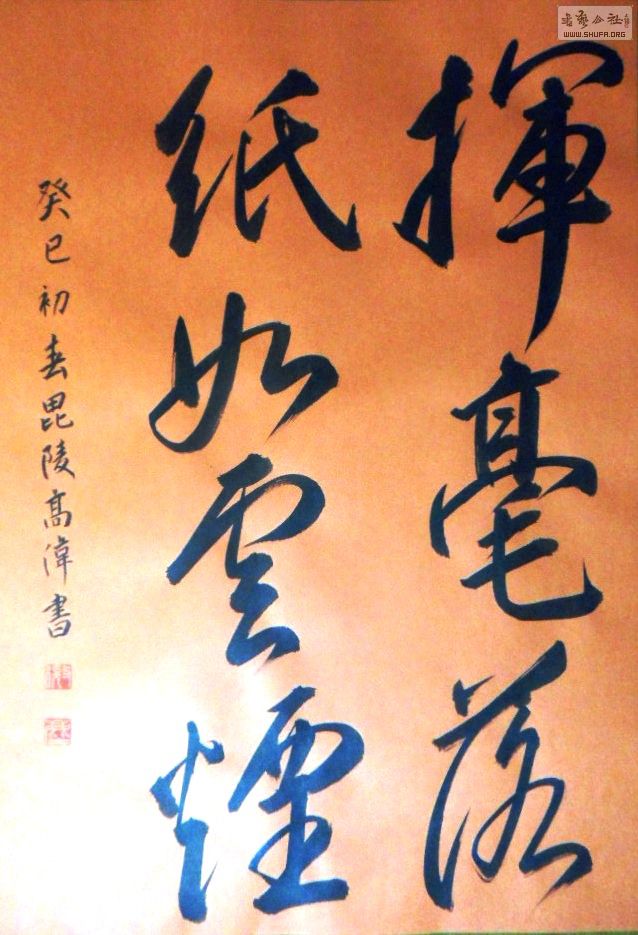 揮毫落
紙如雲煙
癸巳初春毘陵高偉書
WWW.SHUFA.ORG